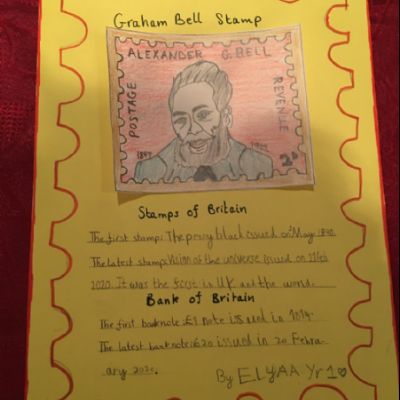 Graham Bell Stamp
ALEXANDER G. BELL
POSTAGE
REVENUE
1847
1922
2
Stamps of Britain
The first stamp: The penny black issued on May 1840.
The latest stamp: Vision of the universe issued on 11 Feb
2020. It was the first in UK and the world.
Bank of Britain
The first banknote: £1 note issued in 1914.
The latest banknote: £20 issued in 20 Febru
ary 2020.
By ELYAA Yr 1